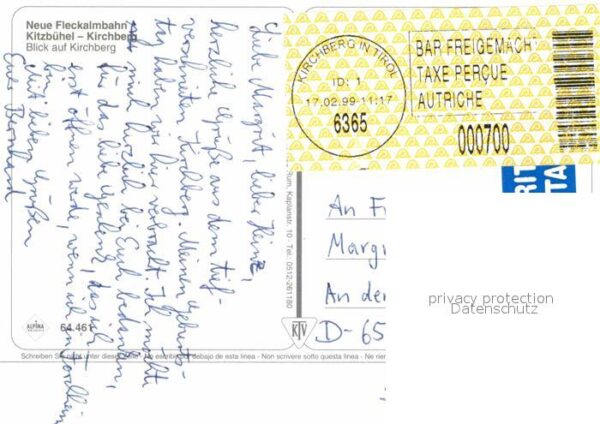 Neue Fleckalmbahn
Kitzbühel – Kirchberg
Blick auf Kirchberg
Liebe Margrit, lieber Heinz,
herzliche Grüße aus dem tief-
verschneiten Kirchberg. Meinen Geburts-
tag haben wir hier verbracht. Ich möchte
mich herzlich bei Euch bedanken,
für das liebe Geschenk, das ich
erst öffnen werde, wenn ich in Nordheim
bin. Mit lieben Grüßen
Euer Bernhard
KIRCHBERG IN TIROL
ID: 1
17.02.99-11:17
6365
BAR FREIGEMACHT
TAXE PERÇUE
AUTRICHE
000700
Rum, Kaplanstr. 10 Tel. 0512-261180
An F
Margr
An der
D-65
privacy protection
Datenschutz
ALPINA
64.461
KTV
Schreiben Sie nicht unter diese Linie - No escribir debajo de esta linea - Non scrivere sotto questa linea - Ne rien